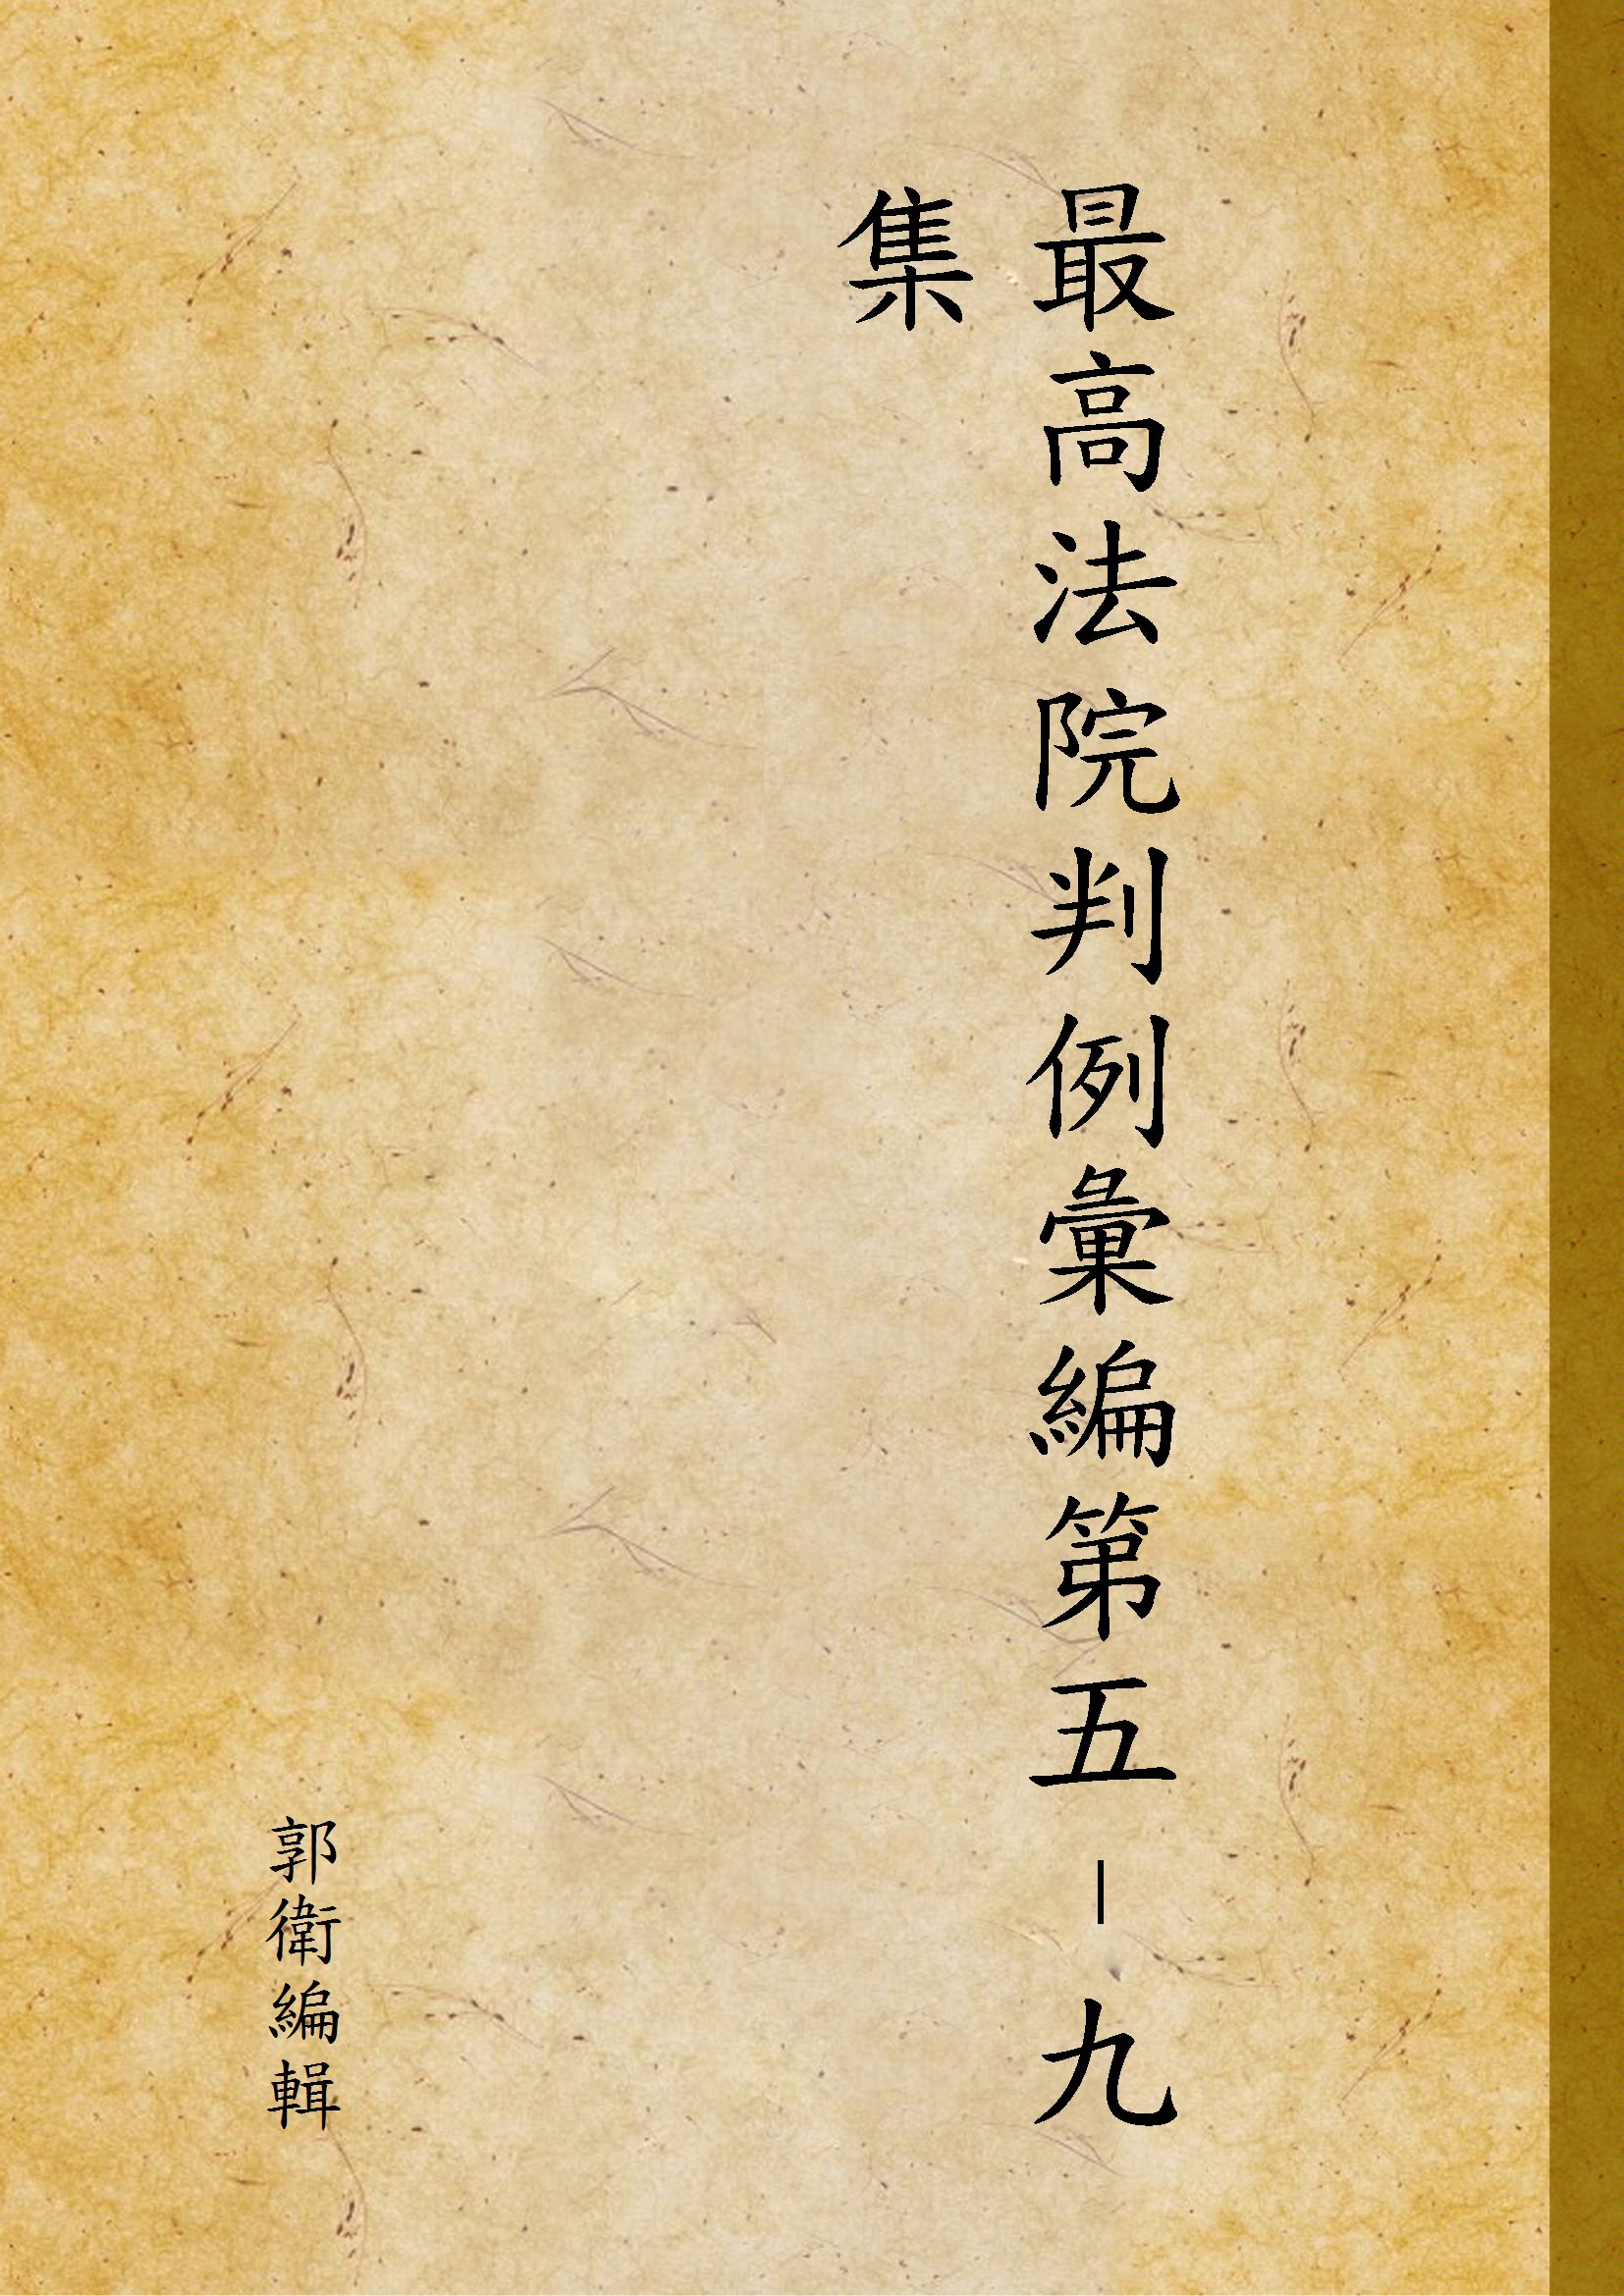 最高法院判例彙編第五－九
集
郭衛編輯